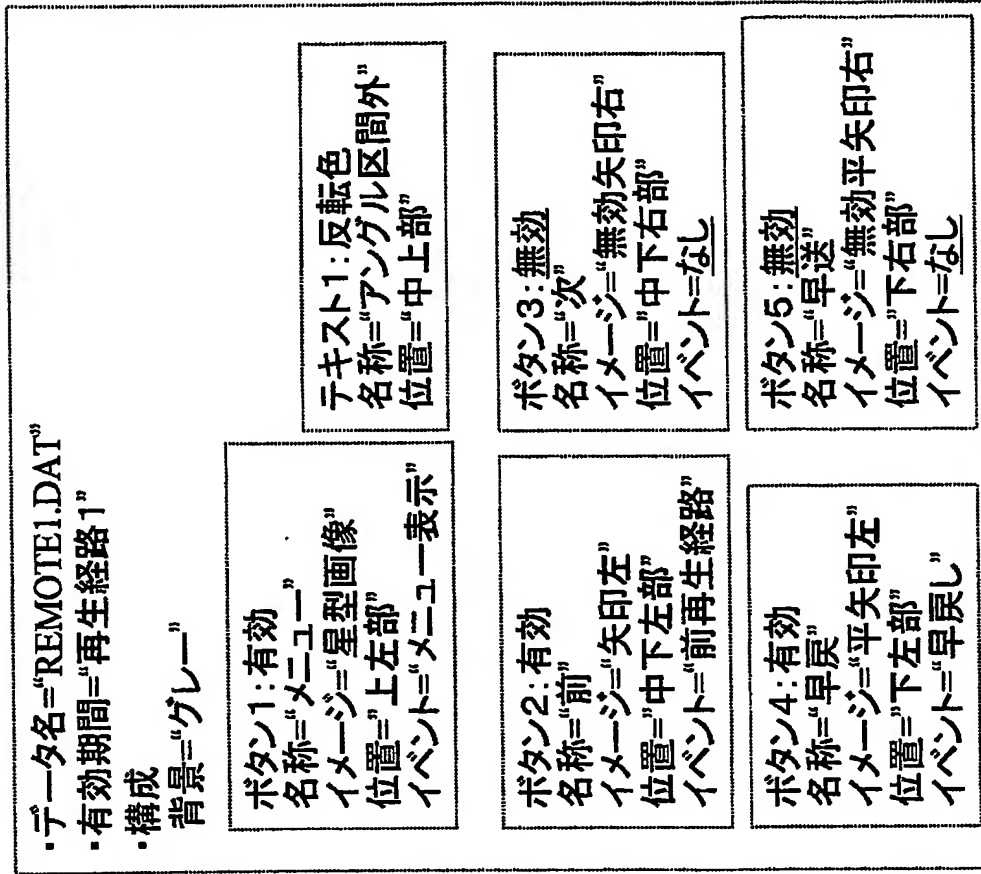 ・データ名=“REMOTE1.DAT”
・有効期間=“再生経路1”
・構成
背景=“グレー”
ボタン1:有効
名称=“メニュー”
イメージ=“星型画像”
位置=”上左部”
イベント=“メニュー表示”
テキスト1:反転色
名称=“アングル区間外”
位置=“中上部”
ボタン2:有効
名称=“前”
イメージ=“矢印左”
位置=”中下左部”
イベント=“前再生経路”
ボタン3:無効
名称=“次”
イメージ=“無効矢印右”
位置=”中下右部”
イベント=なし
ボタン4:有効
名称=“早戻”
イメージ=“平矢印左”
位置=”下左部”
イベント=“早戻し”
ボタン5:無効
名称=“早送”
イメージ=“無効平矢印右”
位置=”下右部”
イベント=なし